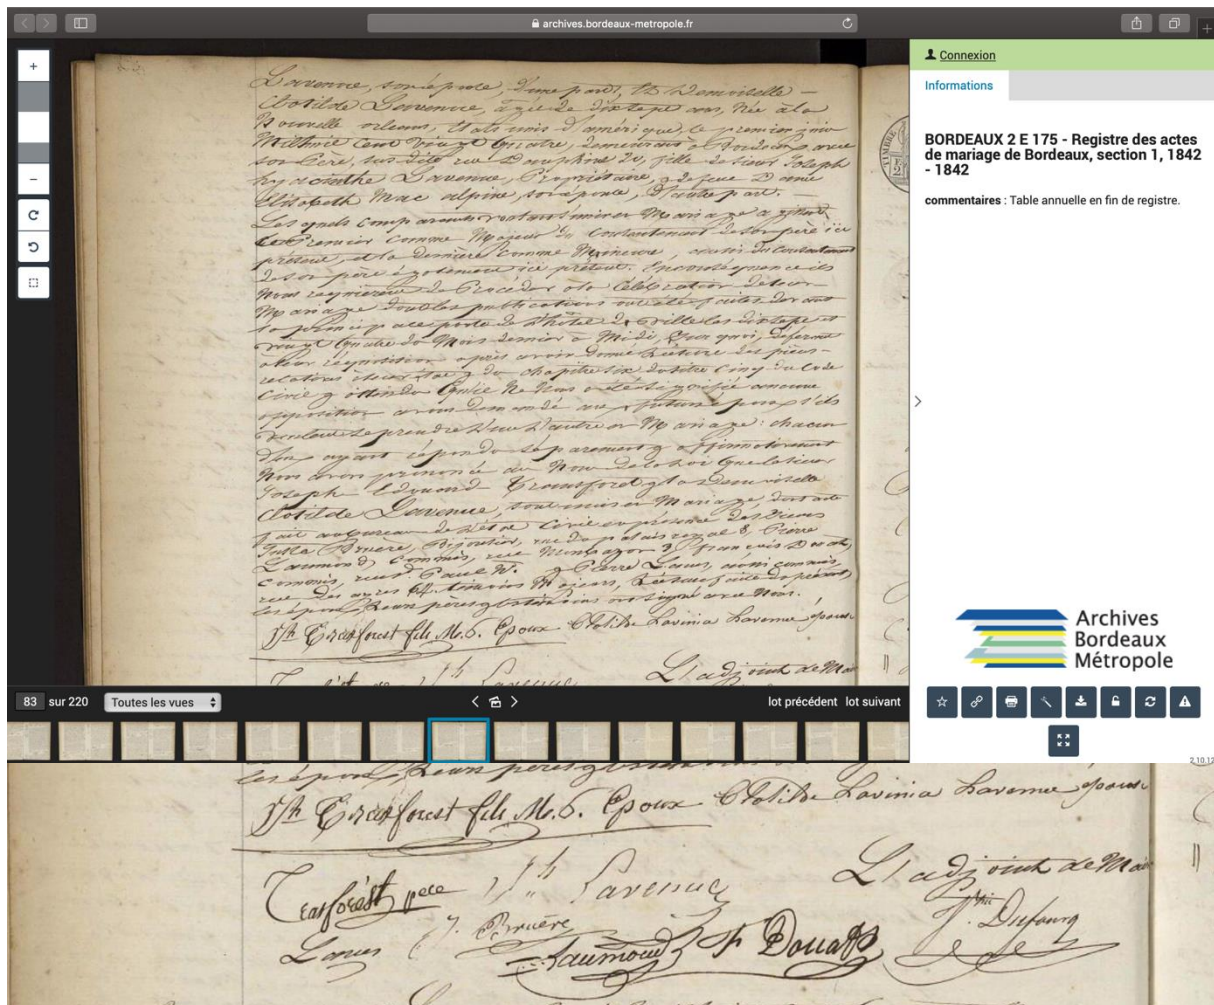 archives.bordeaux-metropole.fr
Connexion
Informations
BORDEAUX 2 E 175 - Registre des actes
de mariage de Bordeaux, section 1, 1842
- 1842
commentaires : Table annuelle en fin de registre.
Lavenue, son épouse, d'une part, Et Demoiselle
Clotilde Lavenue, agée de dix sept ans, Née à la
Nouvelle orléans, Etats unis d'amérique, le premier
Mil huit Cent Vingt Quatre, demeurant à Bordeaux, avec
son Père, sus dite rue Dauphine 20, fille de sieur Joseph
hyacinthe Lavenue, Propriétaire, & de feue Dame
Elisabeth Mac alpine, son épouse, d'autre part.
Les quels Comparants voulant s'unir en Mariage agissant
Le Premier comme Majeur du Consentement de son père ici
présent, et la dernière comme Mineure, aussi du Consentement
de son père également ici présent. En conséquence ils
Nous de Procéder à la Célébration de leur
Mariage dont les publications ont été faites devant
la principale porte de l'hôtel de Ville les dix sept et
vingt Quatre du Mois dernier à Midi, Sur quoi, déférant
à leur réquisition après avoir donné Lecture des pièces
relatives du chapitre six du titre Cinq du Code
Civil & attendu Qu'il Ne Nous a été signifié aucune
opposition avons demandé aux futurs époux s'ils
veulent se prendre l'un l'autre en Mariage : chacun
d'eux ayant répondu séparément & affirmativement
Nous avons prononcé au Nom de la loi Que le sieur
Joseph Edouard & la demoiselle
Clotilde Lavenue, sont unis en Mariage, dont acte
fait au bureau de l'Etat Civil en présence des Sieurs
Bruère, Bijoutier, rue du palais royal 8, Pierre
Laumond, Commis, rue 3, françois Douat,
commis, rue St Paul N. & Pierre Lanus, aussi commis,
rue des ayres 64, témoins Majeurs, Lecture faite du présent,
les époux, Leurs peres & les témoins ont signé avec Nous.
fils M.6. Epoux Clotilde Lavinia Lavenue épouse
Lavenue L'adjoint de Mai
83 sur 220 Toutes les vues lot précédent lot suivant
Archives
Bordeaux
Métropole
2.10.12
les époux, Leurs peres &
fils M.6. Epoux Clotilde Lavinia Lavenue épouse
père Lavenue L'adjoint de Mai
Lanus J. Bruère Laumond F Douat Dufourg